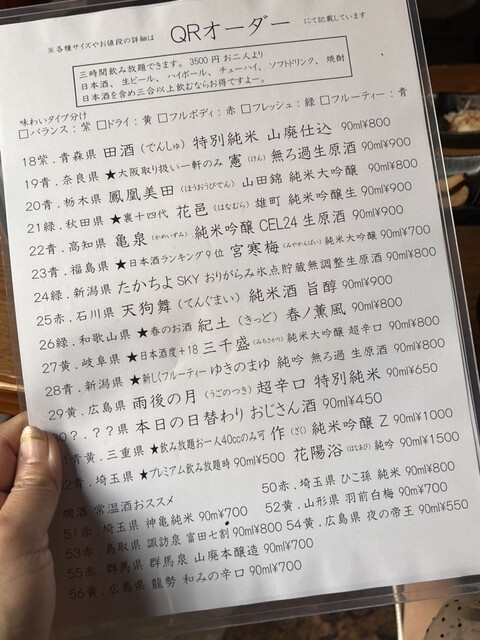 ※各種サイズやお値段の詳細は QRオーダー にて記載しています
三時間飲み放題できます。3500円 お二人より
日本酒、生ビール、ハイボール、チューハイ、ソフトドリンク、焼酎
日本酒を含め三合以上飲むならお得ですよー。
味わいタイプ分け
□バランス：紫 □ドライ：黄 □フルボディ：赤 □フレッシュ：緑 □フルーティー：青
18紫.青森県 田酒（でんしゅ）特別純米 山廃仕込 90ml¥800
19青.奈良県 ★大阪取り扱い一軒のみ 憲（けん）無ろ過生原酒 90ml¥900
20青.栃木県 鳳凰美田（ほうおうびでん）山田錦 純米大吟醸 90ml¥800
21緑.秋田県 ★裏十四代 花邑（はなむら）雄町 純米吟醸生 90ml¥900
22青.高知県 亀泉（かめいずみ）純米吟醸 CEL24 生原酒 90ml¥900
23青.福島県 ★日本酒ランキング9位 宮寒梅（みやかんばい）純米大吟醸 90ml¥700
24緑.新潟県 たかちよSKY おりがらみ氷点貯蔵無調整生原酒 90ml¥800
25赤.石川県 天狗舞（てんぐまい）純米酒 旨醇 90ml¥900
26緑.和歌山県 ★春のお酒 紀土（きっど）春ノ薫風 90ml¥800
27黄.岐阜県 ★日本酒度+18 三千盛（みちさかり）純米大吟醸 超辛口 90ml¥800
28青.新潟県 ★新しくフルーティー ゆきのまゆ 純吟 無ろ過 生原酒 90ml¥800
29黄.広島県 雨後の月（うごのつき）超辛口 特別純米 90ml¥650
0？.？？県 本日の日替わり おじさん酒 90ml¥450
青黄.三重県 ★飲み放題お一人40ccのみ可 作（ざく）純米吟醸 Z 90ml¥1000
2青.埼玉県 ★プレミアム飲み放題時 90ml¥500 花陽浴（はなあび）純吟 90ml¥1500
燗酒 常温酒おススメ
50赤.埼玉県 ひこ孫 純米 90ml¥800
51赤.埼玉県 神亀純米 90ml¥700
52黄.山形県 羽前白梅 90ml¥700
53赤.鳥取県 諏訪泉 富田七割 90ml¥800
54黄.広島県 夜の帝王 90ml¥550
55赤.群馬県 群馬泉 山廃本醸造 90ml¥700
56黄.広島県 龍勢 和みの辛口 90ml¥700